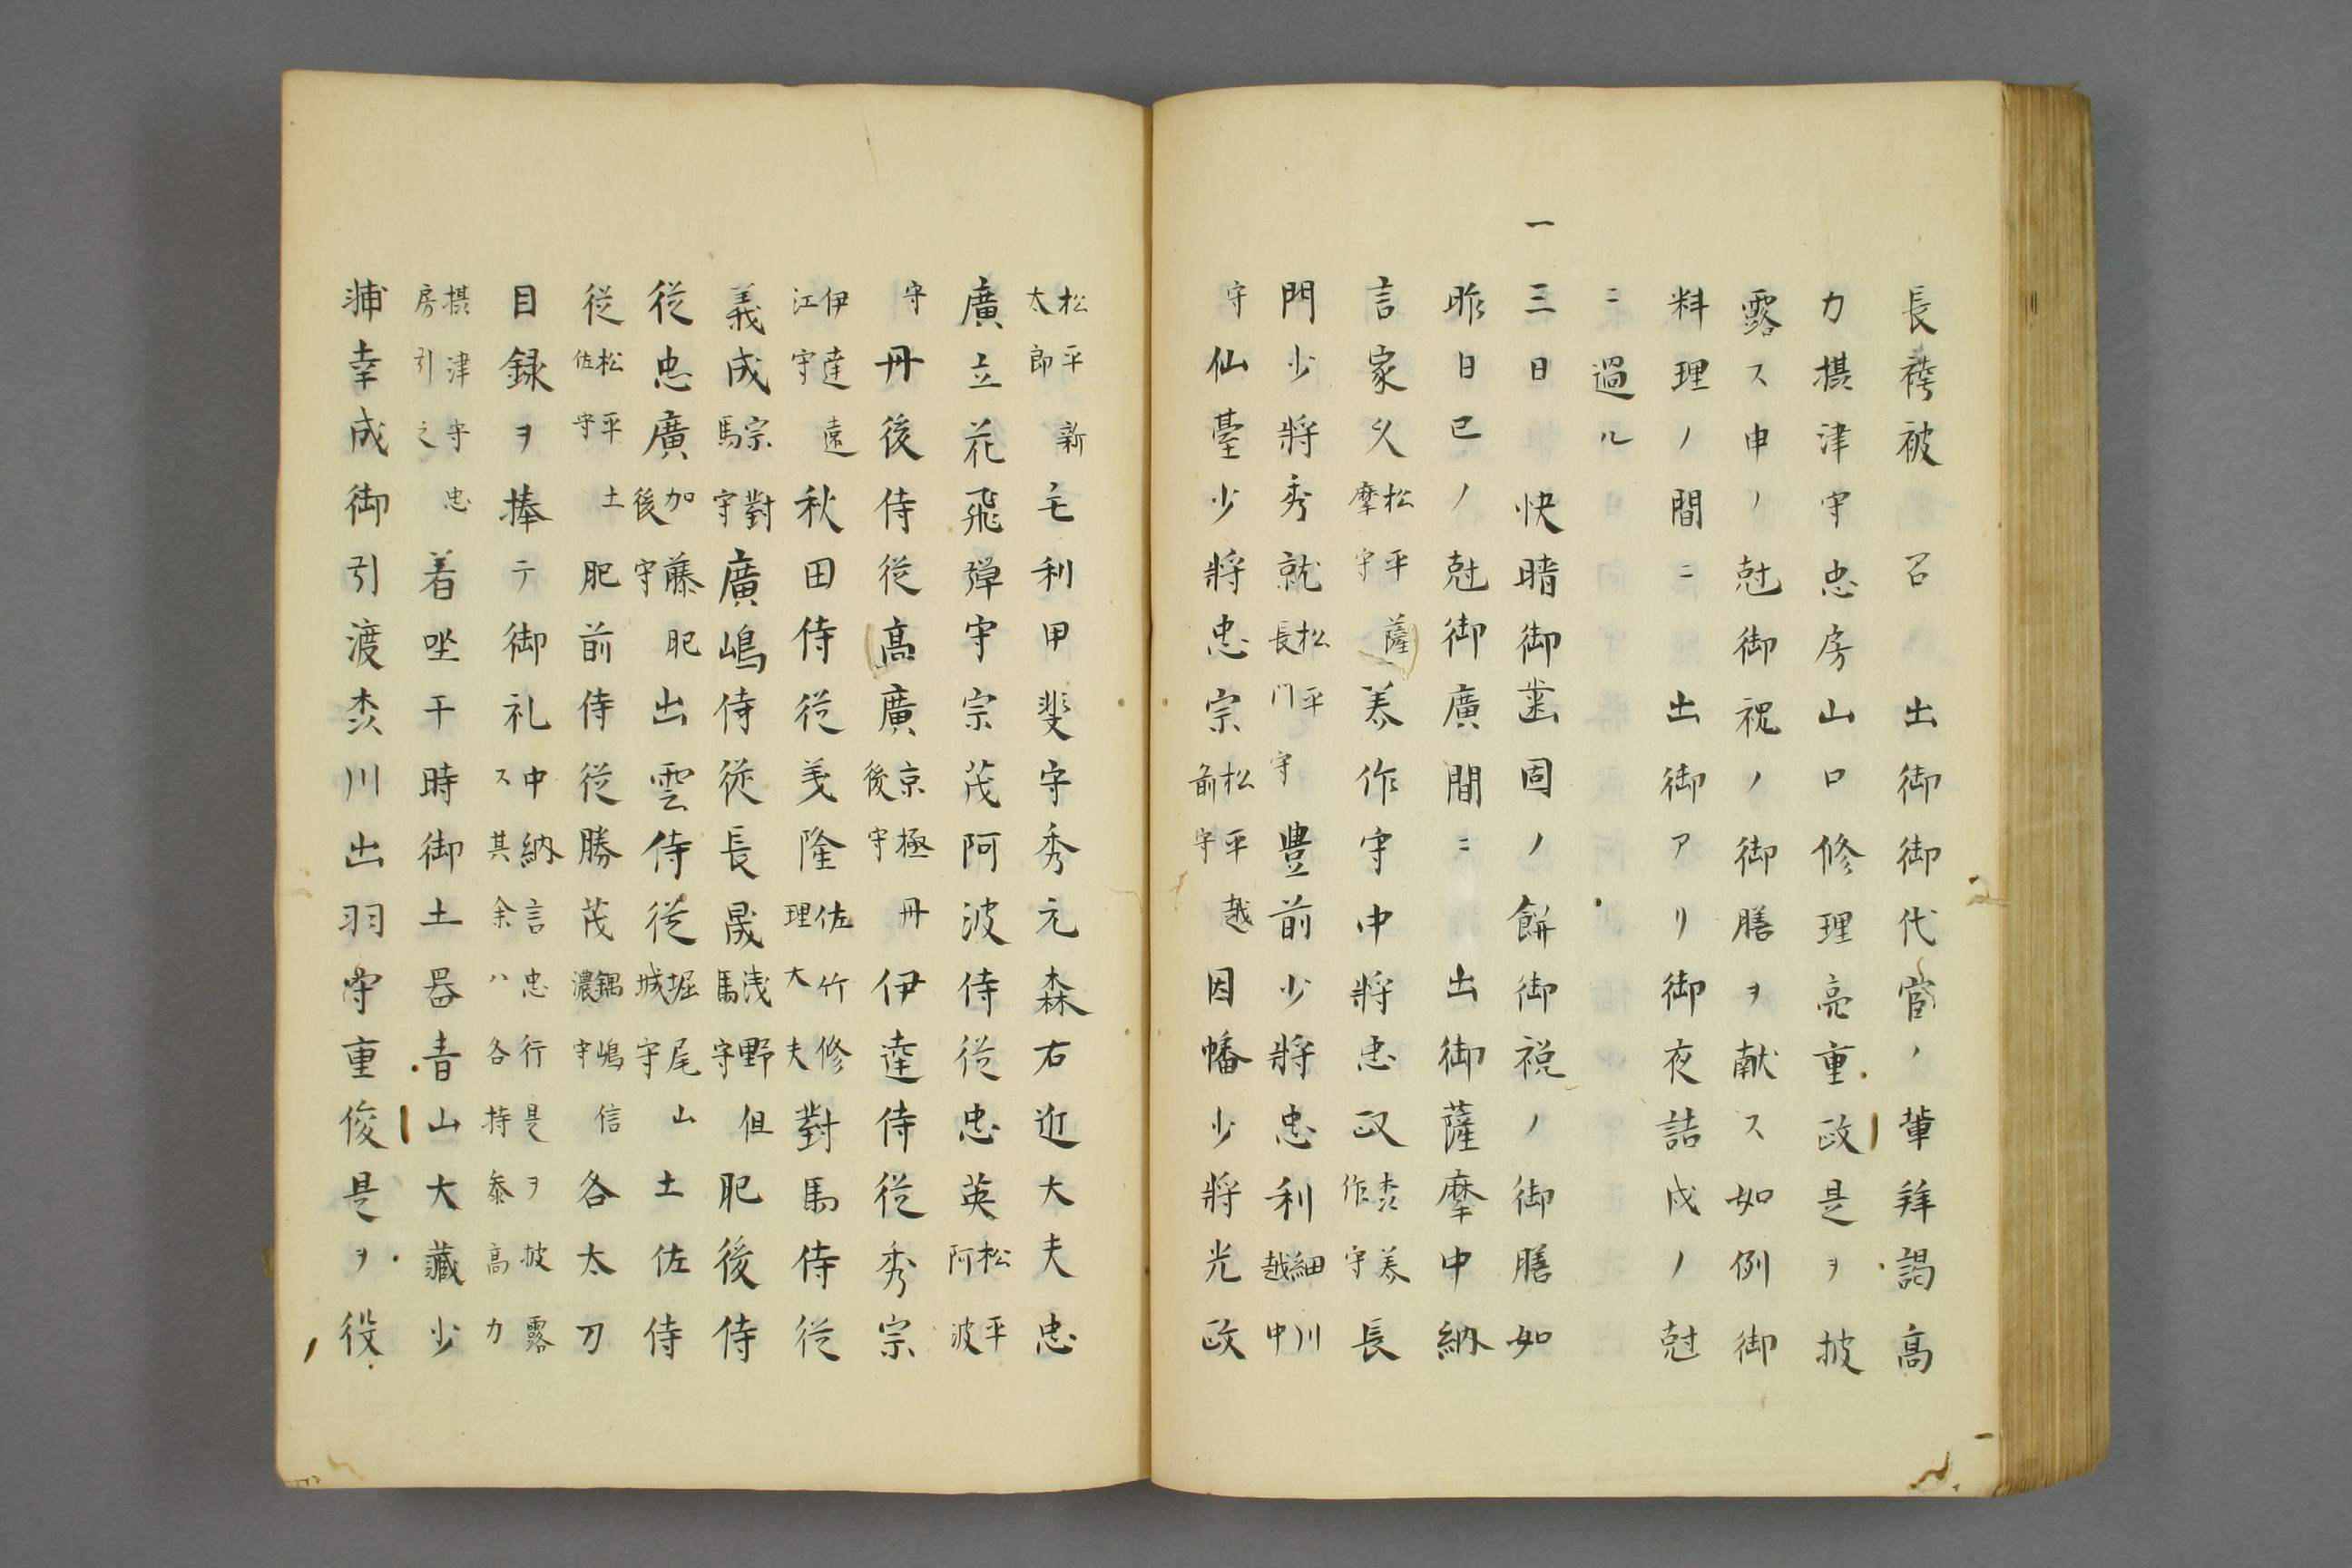 長袴被　召　出御御代官ノ輩拜謁高
力摂津守忠房山口修理亮重政是ヲ披
露ス申ノ尅御祝ノ御膳ヲ献ス如例御
料理ノ間ニ　出御アリ御夜詰戌ノ尅
ニ過ル
一三日　快晴御歯固ノ餅御祝ノ御膳如
昨日巳ノ尅御廣間ニ　出御薩摩中納
言家久松平薩摩守美作守中將忠政森美作守長
門少將秀就松平長門守豊前少將忠利細川越中
守仙臺少將忠宗松平越前守因幡少將光政
松平新太郎毛利甲斐守秀元森右近大夫忠
廣立花飛彈守宗茂阿波侍従忠英松平阿波
守丹後侍従高廣京極丹後守伊達侍従秀宗
伊達遠江守秋田侍従義隆佐竹修理大夫對馬侍従
義成宗對馬守廣嶋侍従長晟浅野但馬守肥後侍
従忠廣加藤肥後守出雲侍従堀尾山城守土佐侍
従松平土佐守肥前侍従勝茂鍋嶋信濃守各太刀
目録ヲ捧テ御礼中納言忠行是ヲ披露ス其余ハ各持参高力
摂津守忠房引之着坐干時御土器青山大藏少
輔幸成御引渡森川出羽守重俊是ヲ役